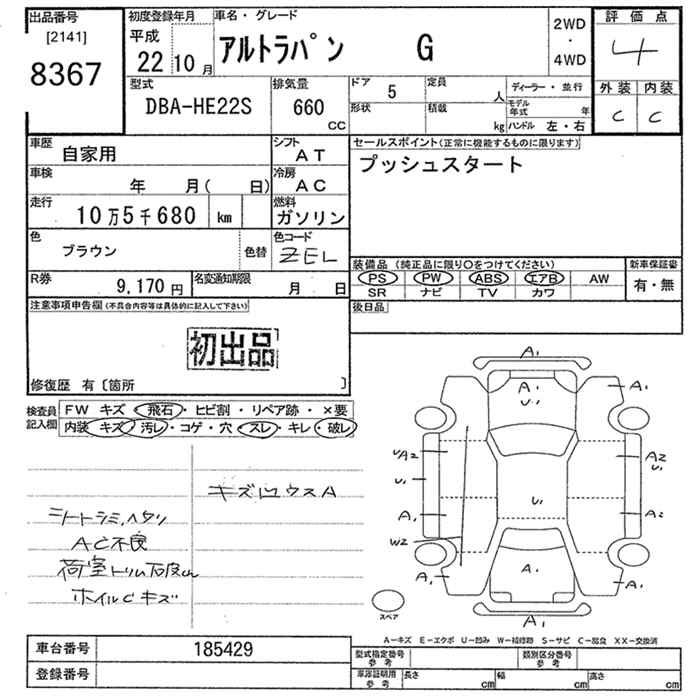 出品番号
[2141]
8367
初度登録年月
平成
22 10 月
車名・グレード
アルトラパン G
2WD
・
4WD
評価点
4
型式
DBA-HE22S
排気量
660
CC
ドア 5
定員 人
形状
積載 kg
ディーラー・並行
モデル年式 年
ハンドル 左・右
外装 内装
C C
車歴
自家用
シフト
AT
セールスポイント(正常に機能するものに限ります)
プッシュスタート
車検
年 月( 日)
冷房
AC
走行
10万5千680 km
燃料
ガソリン
色
ブラウン
色替
色コード
ZEL
装備品 (純正品に限り○をつけてください)
PS PW ABS エアB AW
SR ナビ TV カワ
新車保証書
有・無
R券
9,170 円
名変通知期限
月 日
後日品
注意事項申告欄(不具合内容等は具体的に記入して下さい)
初出品
修復歴 有〔箇所 〕
検査員記入欄
FW キズ・飛石・ヒビ割・リペア跡・×要
内装 キズ・汚レ・コゲ・穴・スレ・キレ・破レ
キズ凹ウスA
シートシミ、ヘタリ
AC不良
荷室トリム
ホイルCキズ
A1
A1
U1
A1
UA2
U1
A1
W2
A1
U1
A2
U1
A2
A1
A1
A1
スペア
A-キズ E-エクボ U-凹み W-補修跡 S-サビ C-腐食 XX-交換済
車台番号 185429
登録番号
型式指定番号
参考
類別区分番号
参考
車庫証明用
参考
長さ cm
幅 cm
高さ cm